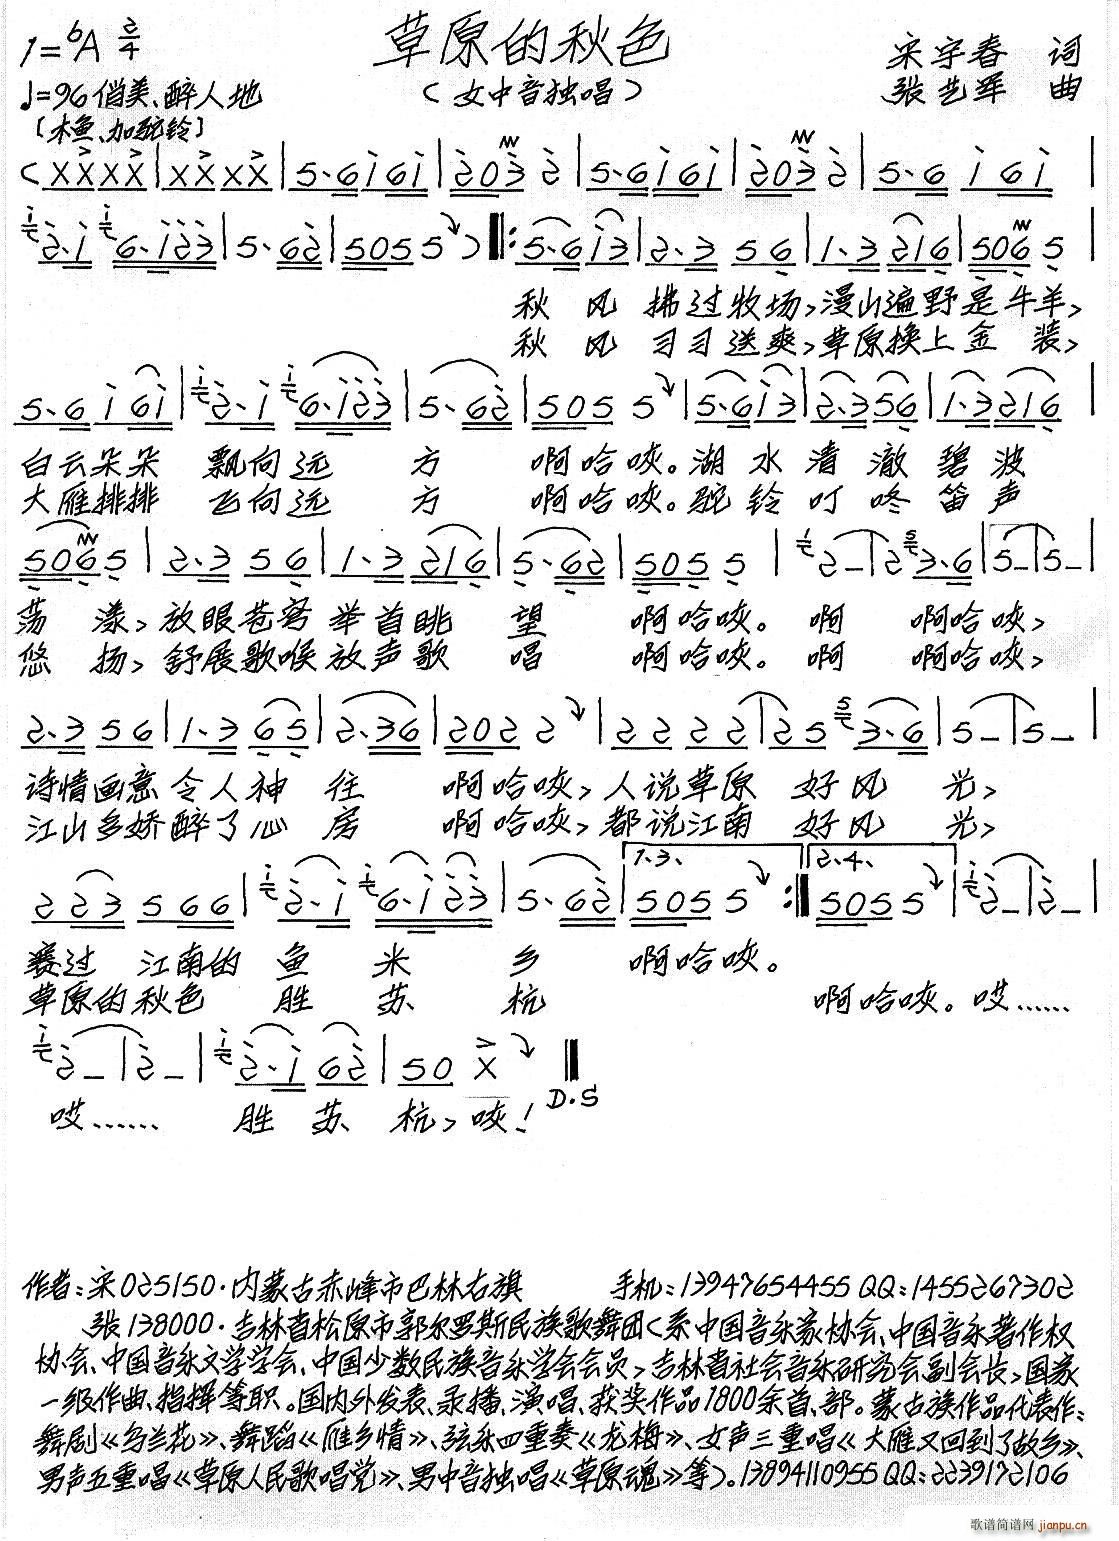 草原的秋色
1=♭A 2/4
宋宇春 词
♩=96 俏美、醉人地
(女中音独唱)
张艺军 曲
(木鱼、加驼铃)
秋风拂过牧场,漫山遍野是牛羊,
秋风习习送爽,草原换上金装,
白云朵朵 飘向远方 啊哈咴。湖水清澈碧波
大雁排排 飞向远方 啊哈咴。驼铃叮咚笛声
荡漾,放眼苍穹举首眺望 啊哈咴。啊 啊哈咴,
悠扬,舒展歌喉放声歌唱 啊哈咴。啊 啊哈咴,
诗情画意令人神往 啊哈咴,人说草原 好风光,
江山多娇醉了心房 啊哈咴,都说江南 好风光,
1、3、 2、4、
赛过 江南的鱼米乡 啊哈咴。
草原的秋色 胜苏杭 啊哈咴。哎……
哎…… 胜苏杭,咴!
D.S
作者:宋 025150·内蒙古赤峰市巴林右旗 手机:13947654455 QQ:1455267302
张 138000·吉林省松原市郭尔罗斯民族歌舞团(系中国音乐家协会、中国音乐著作权
协会、中国音乐文学学会、中国少数民族音乐学会会员,吉林省社会音乐研究会副会长,国家
一级作曲、指挥等职。国内外发表、录播、演唱、获奖作品1800余首、部。蒙古族作品代表作:
舞剧《乌兰花》、舞蹈《雁乡情》、弦乐四重奏《龙梅》、女声三重唱《大雁又回到了故乡》、
男声五重唱《草原人民歌唱党》、男中音独唱《草原魂》等)。13894110955 QQ:2239172106
歌谱简谱网 jianpu.cn